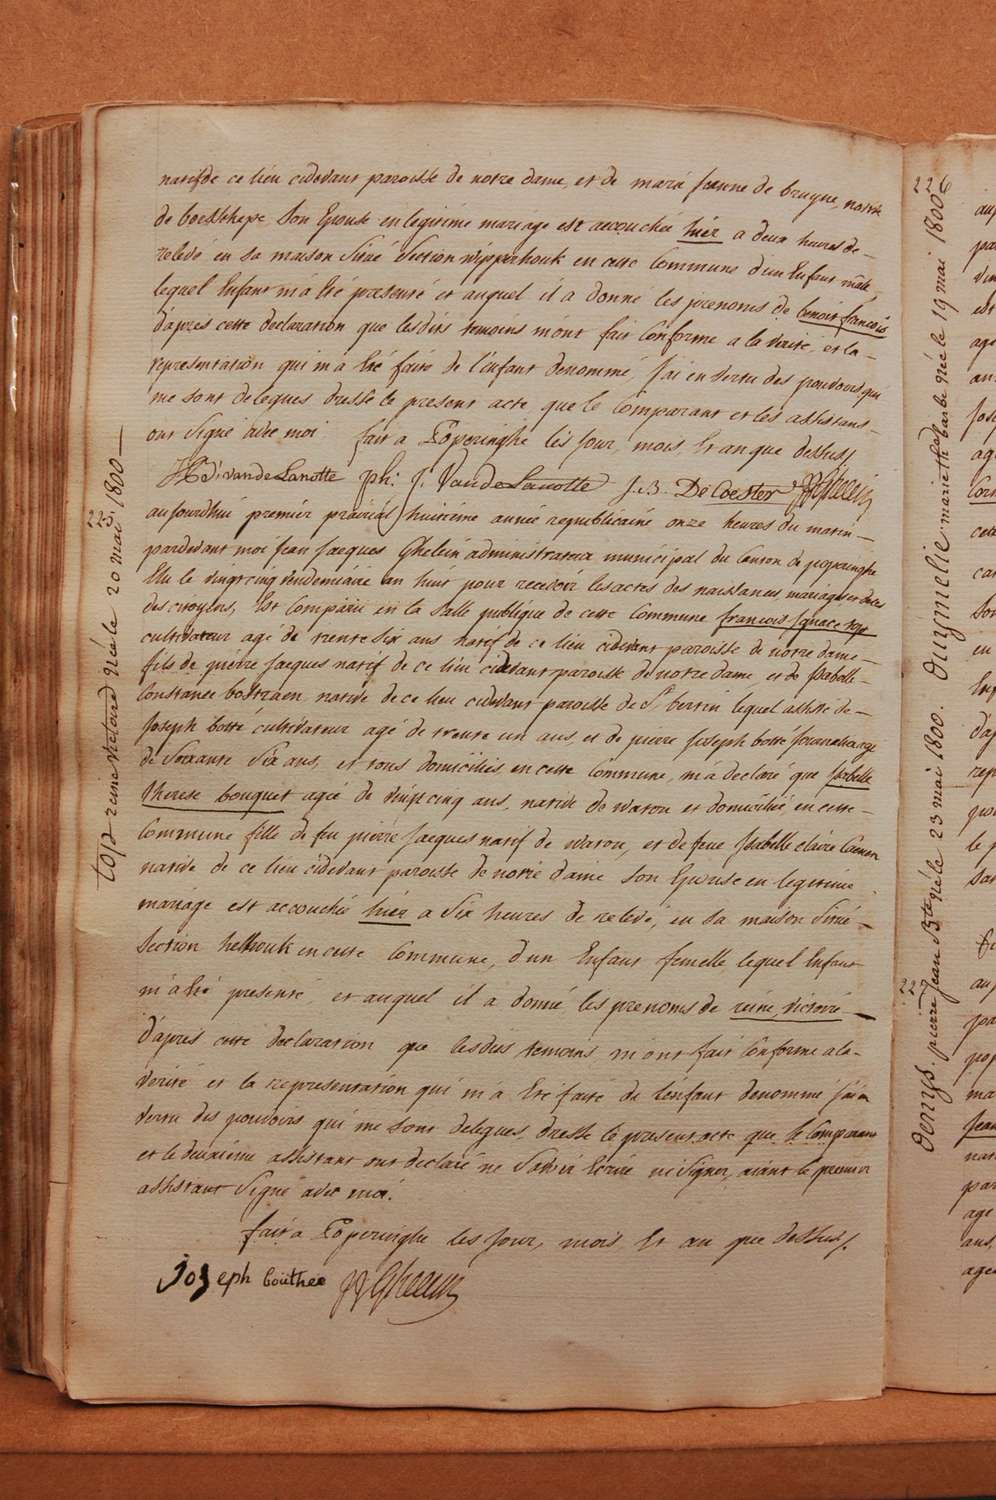 natif de ce lieu cidevant paroisse de notre dame, et de marie jeanne de bruyne, native
de boesschepe, son Epouse en legitime mariage est accouchée hier a deux heures de-
relevé en sa maison Situé Section wipperhouk en cette Commune d'un Enfant mâle,
lequel Enfant m'a été presenté et auquel il a donné les prenoms de benoit francois
d'apres cette declaration que lesdits temoins m'ont fait Conforme a la verité, et la-
representation qui m'a été faite de l'enfant denommé, j'ai en vertu des pouvoirs qui
me sont delegués dressé le present acte que le Comparant et les assistans-
ont signé avec moi. fait a Poperinghe les jour, mois, Et an que dessus
vande Lanotte ph: J. Vande Lanotte J.B. De Coester JJ Ghelein
225
aujourdhui premier prairial huitieme année republicaine onze heures du matin-
pardevant moi Jean Jacques Ghelein administrateur municipal du Canton de poperinghe
Elu le vingtcinq vendemiaire an huit pour recevoir les actes des naissances mariages et deces
des citoyens, Est Comparu en la Salle publique de cette Commune francois Ignace top
cultivateur agé de trente six ans natif de ce lieu cidevant paroisse de notre dame-
fils de pierre Jacques natif de ce lieu cidevant paroisse de notre dame et de Isabelle-
Constance bastraen native de ce lieu cidevant paroisse de St. bertin lequel assisté de-
Joseph botté cultivateur agé de trente un ans, et de pierre Joseph botté Journalier agé
de Soixante Six ans, et tous domiciliés en cette Commune, m'a declaré que Isabelle
therese bouquet agée de vingtcinq ans, native de watou et domiciliée en cette-
Commune fille de feu pierre Jacques natif de watou, et de feue Isabelle claire
native de ce lieu cidevant paroisse de notre dame son Epouse en legitime
mariage est accouchée hier a Six heures de relevé, en sa maison Situé-
Section helhouk en cette Commune, d'un Enfant femelle lequel Enfant
m'a été presenté, et auquel il a donné les prenoms de reine, victoire-
d'apres cette declaration que lesdits temoins m'ont fait Conforme a la-
verité et la representation qui m'a Eté faite de l'enfant denommé j'ai en
vertu des pouvoirs qui me sont delegués, dressé le present acte que le Comparant
et le deuxieme assistant ont declaré ne Savoir Ecrire ni Signer, aiant le premier
assistant Signé avec moi.
fait a Poperinghe les jour, mois Et an que dessus.
Joseph bouthee JJ Ghelein
top reine victoire Née le 20 mai 1800-
226
duijmelie. marie th. barbe Née le 19 mai 1800
227
denys. pierre Jean Bte Né le 23 mai 1800.